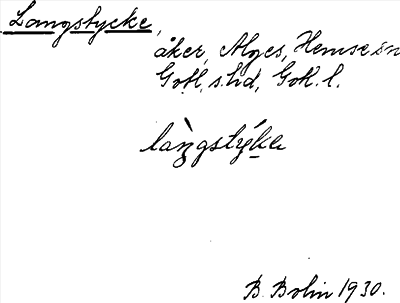 Langstycke,
åker, Alges, Hemse sn
Gotl. s. hd, Gotl. l.
làngstýke
B. Bolin 1930.